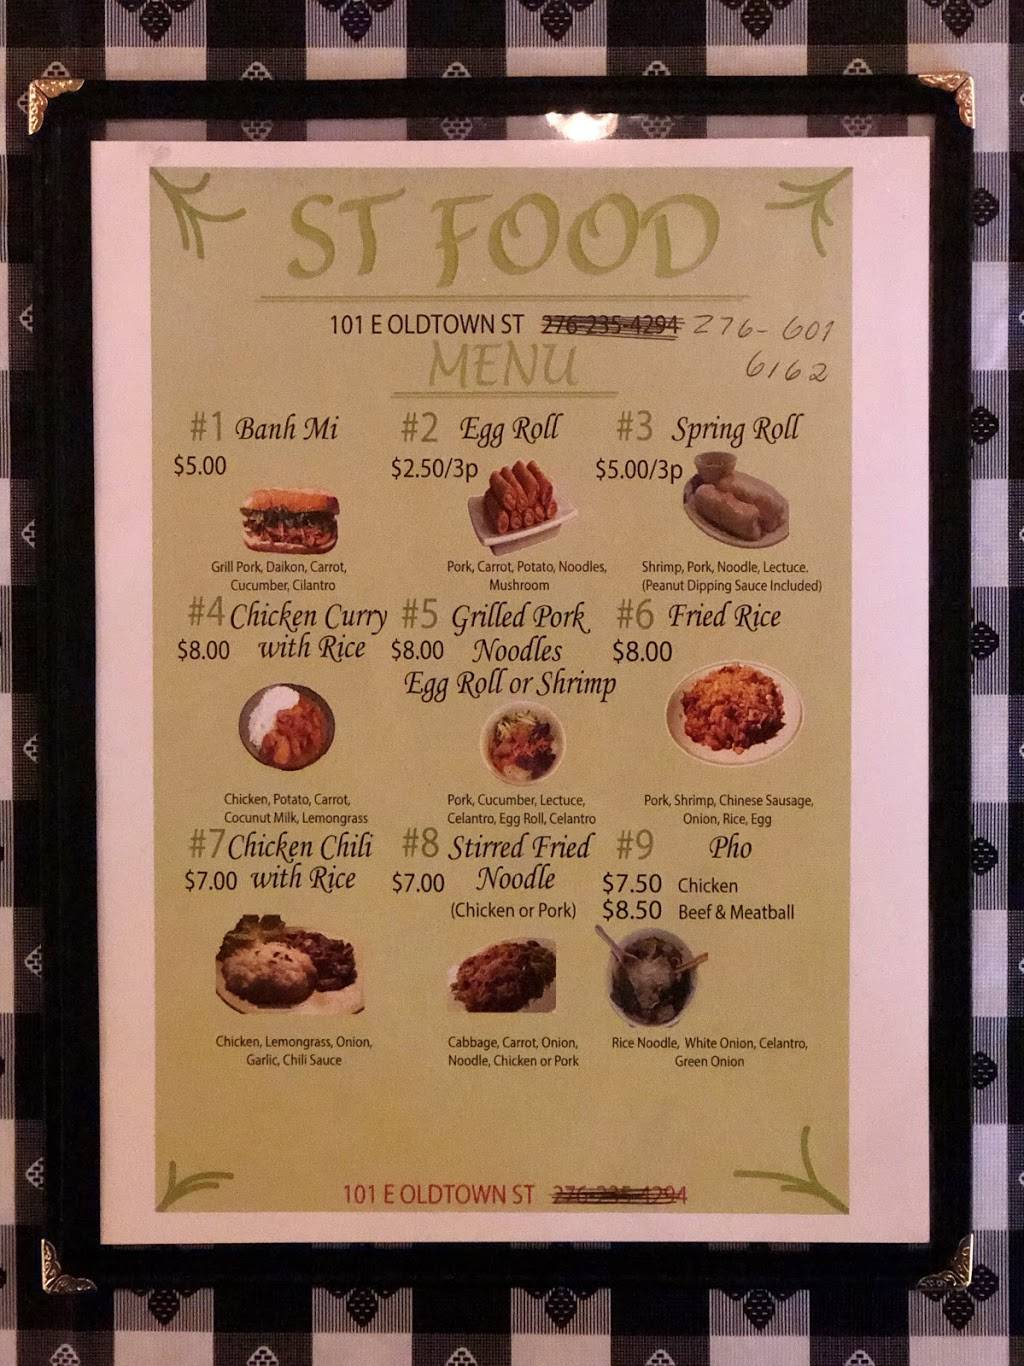 ST FOOD
101 E OLDTOWN ST 276-235-4294 276-601
6162
MENU
#1 Banh Mi
$5.00
Grill Pork, Daikon, Carrot,
Cucumber, Cilantro
#2 Egg Roll
$2.50/3p
Pork, Carrot, Potato, Noodles,
Mushroom
#3 Spring Roll
$5.00/3p
Shrimp, Pork, Noodle, Lectuce.
(Peanut Dipping Sauce Included)
#4 Chicken Curry
$8.00 with Rice
Chicken, Potato, Carrot,
Coconut Milk, Lemongrass
#5 Grilled Pork
$8.00 Noodles
Egg Roll or Shrimp
Pork, Cucumber, Lectuce,
Celantro, Egg Roll, Celantro
#6 Fried Rice
$8.00
Pork, Shrimp, Chinese Sausage,
Onion, Rice, Egg
#7 Chicken Chili
$7.00 with Rice
Chicken, Lemongrass, Onion,
Garlic, Chili Sauce
#8 Stirred Fried
$7.00 Noodle
(Chicken or Pork)
Cabbage, Carrot, Onion,
Noodle, Chicken or Pork
#9 Pho
$7.50 Chicken
$8.50 Beef & Meatball
Rice Noodle, White Onion, Celantro,
Green Onion
101 E OLDTOWN ST 276-235-4294